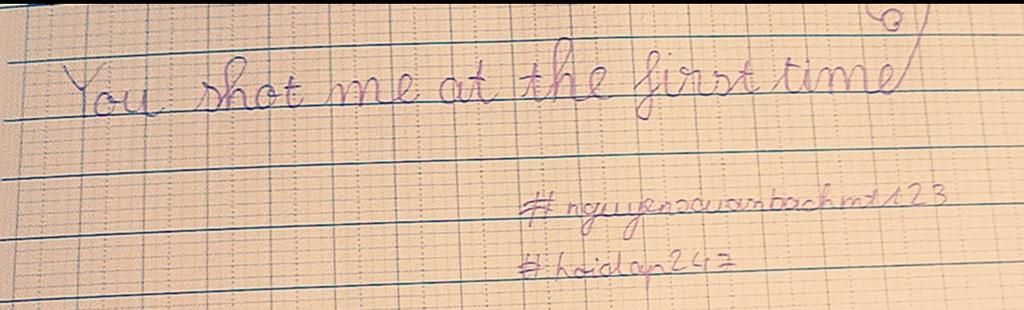 You shot me at the first time
#nguyenxuanbachmt123
#hoidap247